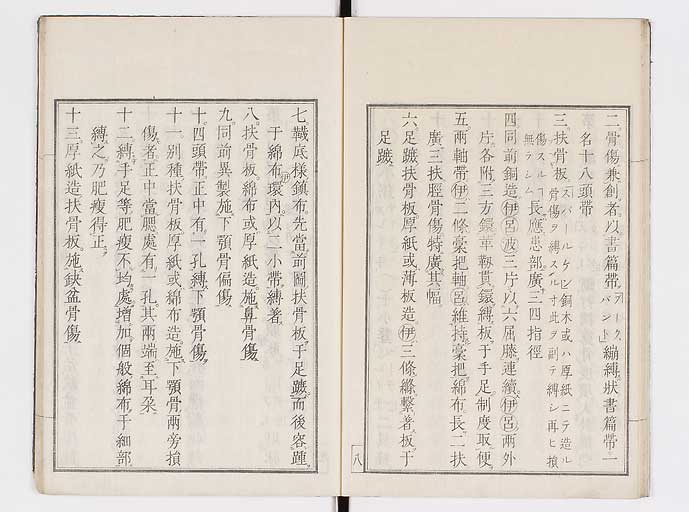 二骨傷兼創者以書篇帶ブーク
バンド繃縛狀書篇帶一
名十八頭帶
三扶骨板スパールケビ銅木或ハ厚紙ニテ造ル
骨傷ヲ縛スル寸此ヲ副テ縛シ再ヒ損
傷スルヿ
無ラシム長應患部廣三四指徑
四同前銅造伊呂波三片以六屈藤連續伊呂兩外
片各附三方鐶革靱貫鐶縛板于手足制度取便
五兩軸帶伊二條槖把軸呂維持槖把綿布長二扶
廣三扶脛骨傷特廣其幅
六足蹠扶骨板厚紙或薄板造伊三條絛繫著板于
足蹠
七韈底樣鎮布先當前圖扶骨板于足蹠而後容踵
于綿布環伊內以二小帶縛著
八扶骨板綿布或厚紙造施鼻骨傷
九同前異製施下顎骨偏傷
十四頭帶正中有一孔縛下顎骨傷
十一別種扶骨板厚紙或綿布造施下顎骨兩旁損
傷者正中當腮處有一孔其兩端至耳朶
十二縛手足等肥瘦不均處增加個般綿布于細部
縛之乃肥瘦得正
十三厚紙造扶骨板施缺盆骨傷
八